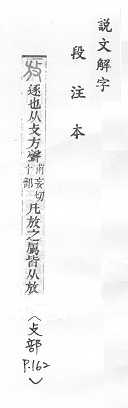 說文解字
段注本
放 逐也从攴方聲甫妄切十部凡放之屬皆从放
〈攴部
P.162〉